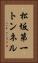 松坂第一
トンネル